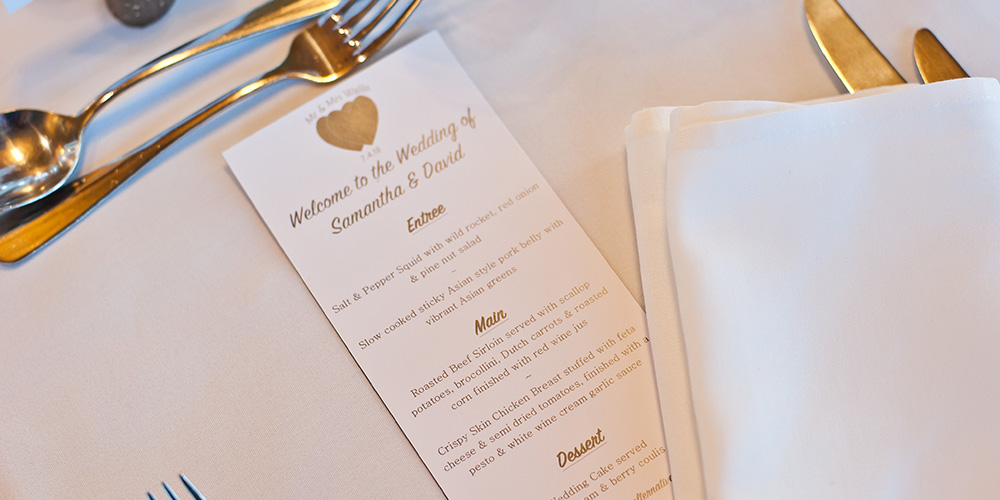 Mr & Mrs Wallis
7.4.18
Welcome to the Wedding of
Samantha & David
Entree
Salt & Pepper Squid with wild rocket, red onion
& pine nut salad
~
Slow cooked sticky Asian style pork belly with
vibrant Asian greens
Main
Roasted Beef Sirloin served with scallop
potatoes, brocollini, Dutch carrots & roasted
corn finished with red wine jus
~
Crispy Skin Chicken Breast stuffed with feta
cheese & semi dried tomatoes, finished with a
pesto & white wine cream garlic sauce
Dessert
Wedding Cake served
& berry coulis